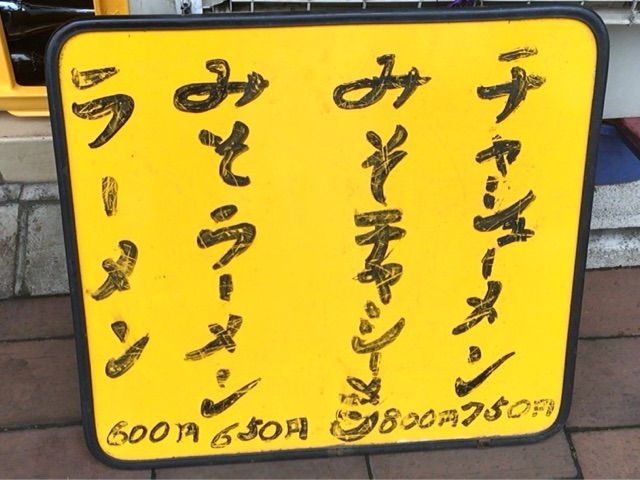 チャーシューメン 750円
みそチャーシューメン 800円
みそラーメン 650円
ラーメン 600円